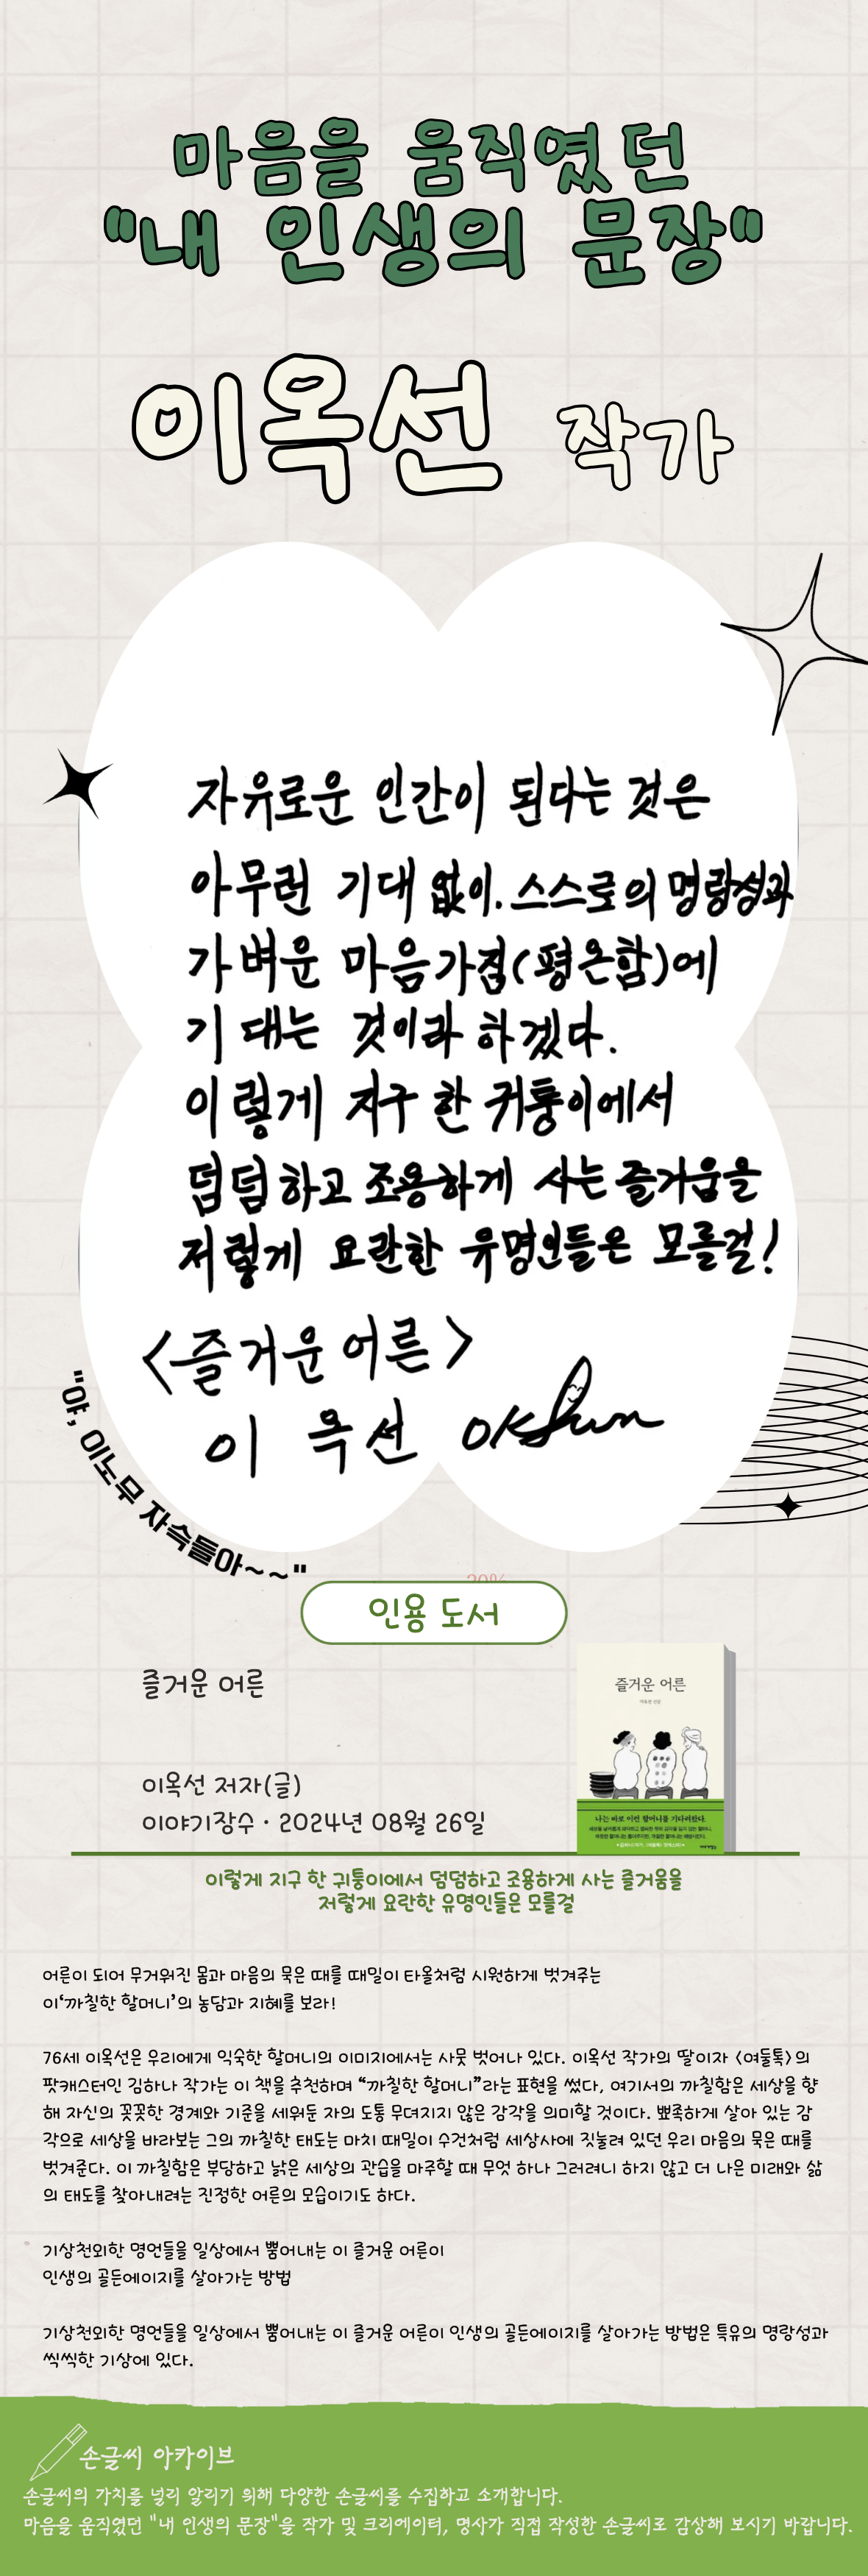 마음을 움직였던
"내 인생의 문장"
이옥선 작가
자유로운 인간이 된다는 것은
아무런 기대 없이. 스스로의 명랑성과
가벼운 마음가짐(평온함)에
기대는 것이라 하겠다.
이렇게 지구 한 귀퉁이에서
덤덤하고 조용하게 사는 즐거움을
저렇게 요란한 유명인들은 모를걸!
<즐거운 어른>
이옥선 oksun
"야, 이노무 자속들아~~"
인용 도서
즐거운 어른
이옥선 저자(글)
이야기장수 · 2024년 08월 26일
즐거운 어른
이옥선 산문
나는 바로 이런 할머니를 기다려왔다.
이야기장수
이렇게 지구 한 귀퉁이에서 덤덤하고 조용하게 사는 즐거움을
저렇게 요란한 유명인들은 모를걸
어른이 되어 무거워진 몸과 마음의 묵은 때를 때밀이 타올처럼 시원하게 벗겨주는
이‘까칠한 할머니’의 농담과 지혜를 보라!
76세 이옥선은 우리에게 익숙한 할머니의 이미지에서는 사뭇 벗어나 있다. 이옥선 작가의 딸이자 <여둘톡>의
팟캐스터인 김하나 작가는 이 책을 추천하며 “까칠한 할머니”라는 표현을 썼다, 여기서의 까칠함은 세상을 향
해 자신의 꼿꼿한 경계와 기준을 세워둔 자의 도통 무뎌지지 않은 감각을 의미할 것이다. 뾰족하게 살아 있는 감
각으로 세상을 바라보는 그의 까칠한 태도는 마치 때밀이 수건처럼 세상사에 짓눌려 있던 우리 마음의 묵은 때를
벗겨준다. 이 까칠함은 부당하고 낡은 세상의 관습을 마주할 때 무엇 하나 그러려니 하지 않고 더 나은 미래와 삶
의 태도를 찾아내려는 진정한 어른의 모습이기도 하다.
기상천외한 명언들을 일상에서 뿜어내는 이 즐거운 어른이
인생의 골든에이지를 살아가는 방법
기상천외한 명언들을 일상에서 뿜어내는 이 즐거운 어른이 인생의 골든에이지를 살아가는 방법은 특유의 명랑성과
씩씩한 기상에 있다.
손글씨 아카이브
손글씨의 가치를 널리 알리기 위해 다양한 손글씨를 수집하고 소개합니다.
마음을 움직였던 "내 인생의 문장"을 작가 및 크리에이터, 명사가 직접 작성한 손글씨로 감상해 보시기 바랍니다.